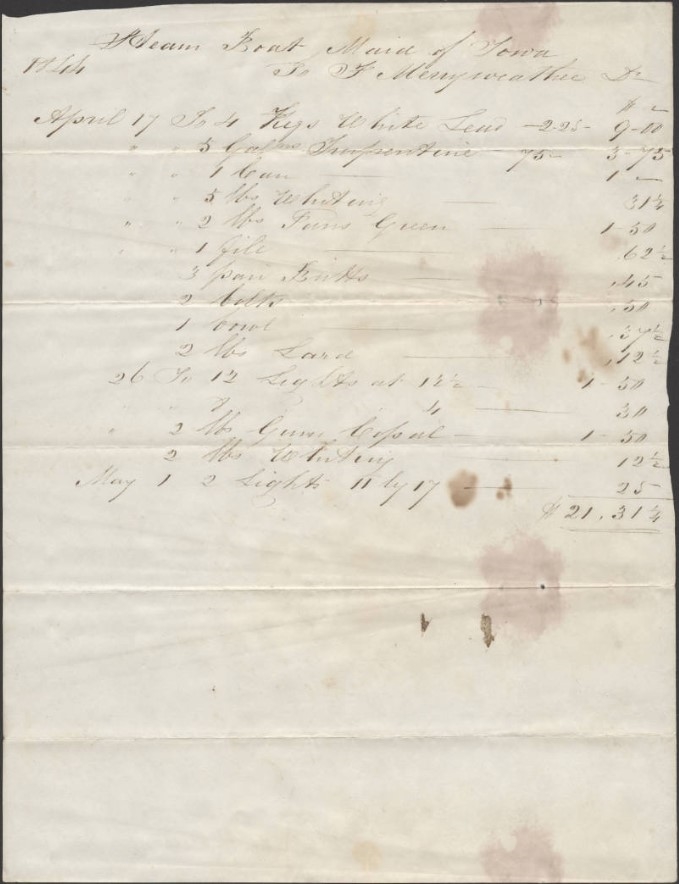 Steam Boat Maid of Iowa
1844 To F Merryweather Dr
$ c
April 17 To 4 Kegs White Lead - 2.25 - 9-00
" " 5 Galns Turpentine - 75 - 3-75
" " 1 Can 1 -
" " 5 lbs Whiting 31¼
" " 2 lbs Paris Green 1-50
" " 1 file .62½
3 pair Butts .45
2 bolts .50
1 bowl .37½
2 lbs Lard .12½
26 To 12 Lights at 12½ 1-50
" 4 30
" 2 lbs Gum Copal 1-50
2 lbs Whiting 12½
May 1 2 Lights 11 by 17 25
$ 21.31¼